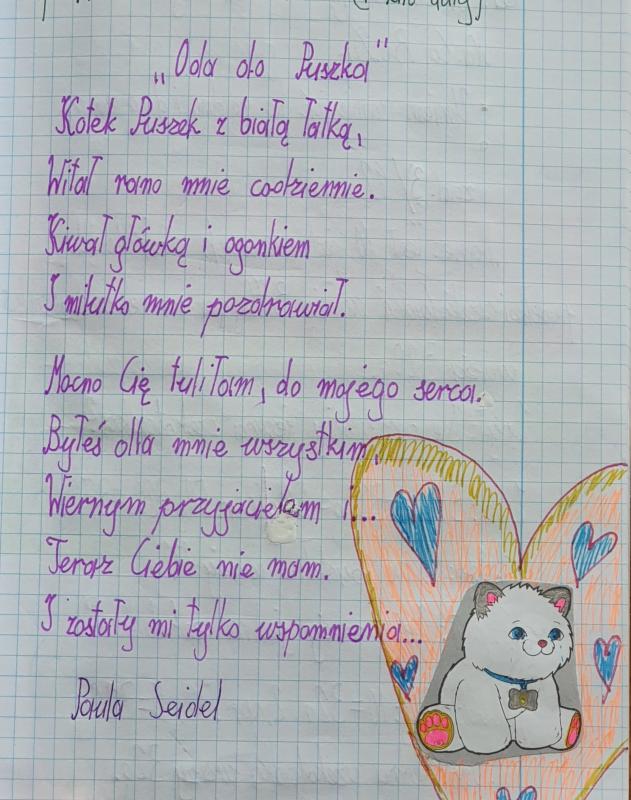 „Oda do Puszka"
Kotek Puszek z białą łatką,
Witał rano mnie codziennie.
Kiwał główką i ogonkiem
I milutko mnie pozdrawiał.
Mocno Cię tuliłam, do mojego serca.
Byłeś dla mnie wszystkim,
Wiernym przyjacielem i...
Teraz Ciebie nie mam.
I zostały mi tylko wspomnienia...
Paula Seidel